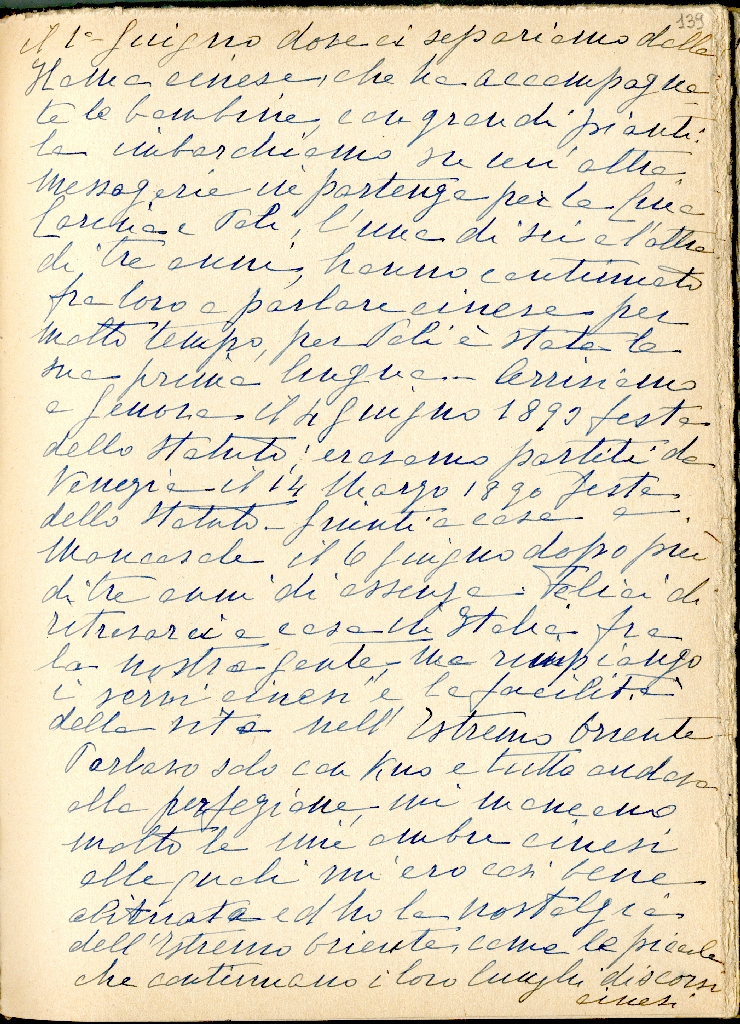 139
il 1° Giugno dove ci separiamo dalla
Hama cinese, che ha accompagna
te le bambine, con grandi pianti.
La imbarchiamo su un'altra
Messagerie in partenza per la Cina
Lavinia e Poli, l'una di sei e l'altra
di tre anni, hanno continuato
fra loro a parlare cinese per
molto tempo, per Poli è stata la
sua prima lingua – Arriviamo
a Genova il 4 Giugno 1893 festa
dello Statuto; eravamo partiti da
Venezia il 14 Marzo 1890 festa
dello Statuto – Giunti a casa a
Moncasale il 6 Giugno dopo più
di tre anni di assenza. Felici di
ritrovarci a casa in Italia fra
la nostra gente, ma rimpiango
i servi cinesi e la facilità
della vita nell'Estremo Oriente
Parlavo solo con uno e tutto andava
alla perfezione, mi mancano
molto le mie ombre cinesi
alle quali mi ero così bene
abituata ed ho la nostalgia
dell'Estremo Oriente, come le piccole
che continuano i loro lunghi discorsi
cinesi.